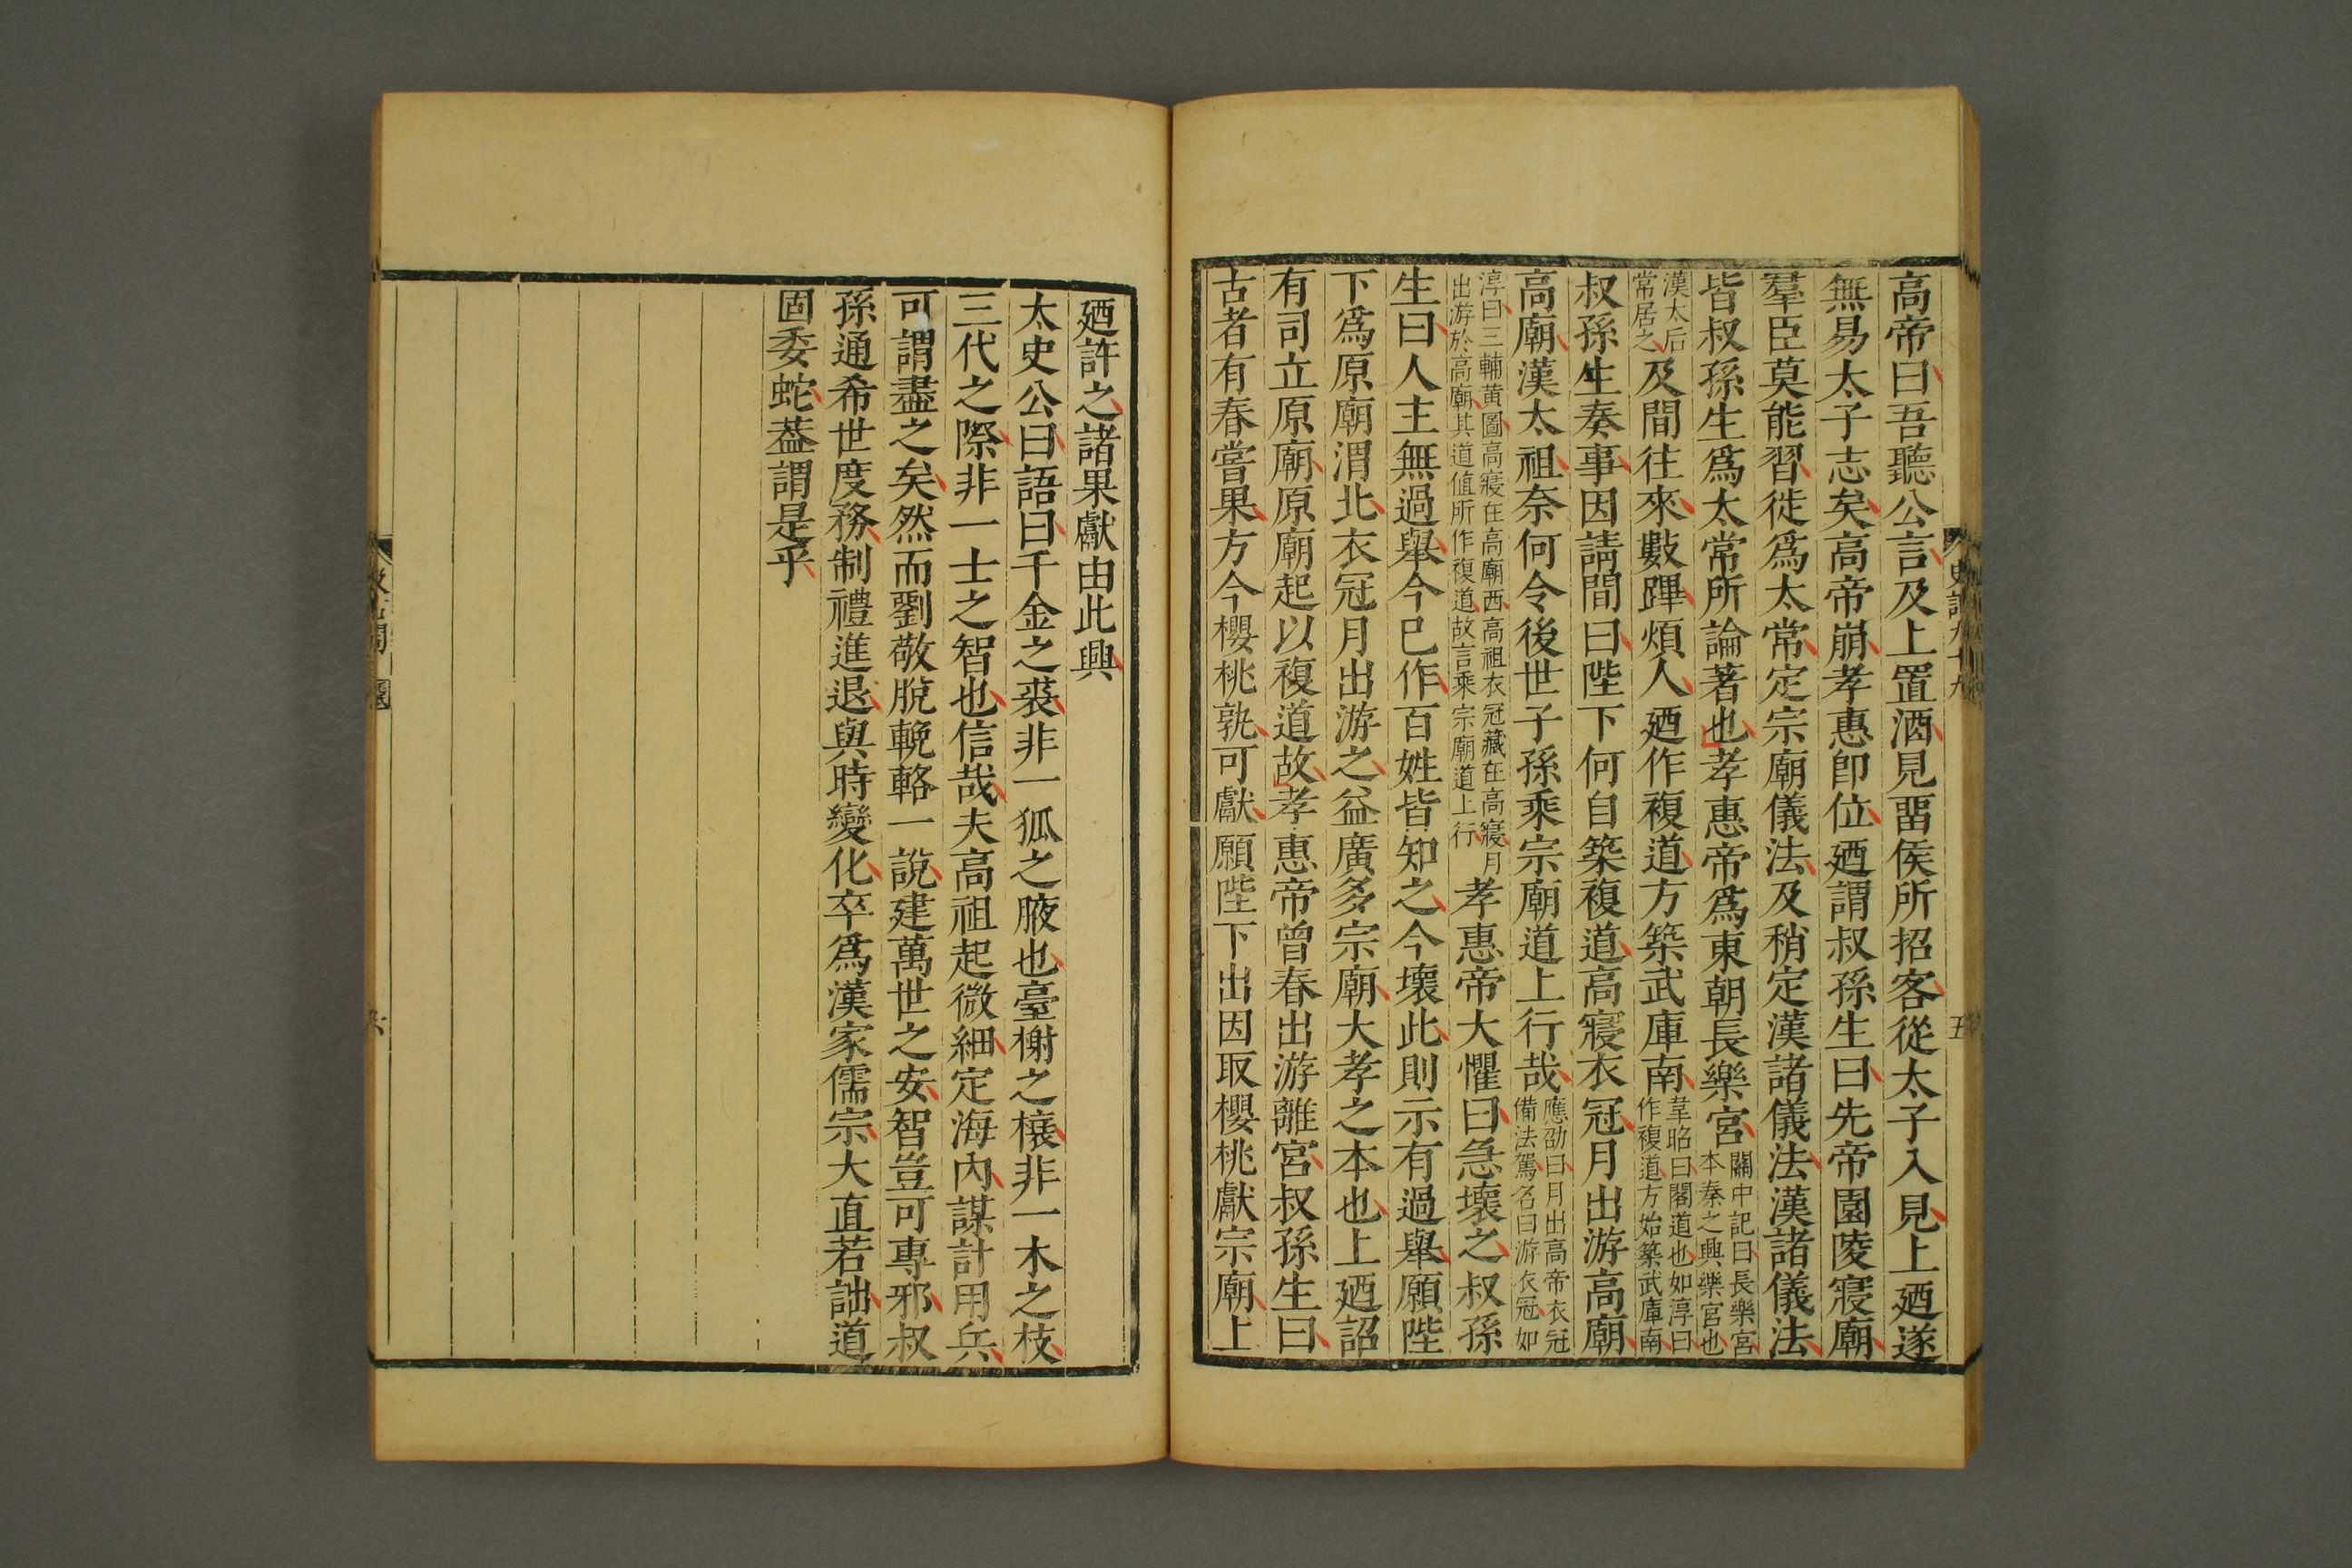 高帝曰吾聽公言及上置酒見畱侯所招客從太子入見上廼遂
無易太子志矣高帝崩孝惠卽位廼謂叔孫生曰先帝園陵寢廟
羣臣莫能習徙爲太常定宗廟儀法及稍定漢諸儀法漢諸儀法
皆叔孫生爲太常所論著也孝惠帝爲東朝長樂宮關中記曰長樂宮本秦之興樂宮也
漢太后常居之及間往來數蹕煩人廼作複道方築武庫南韋昭曰閣道也如淳曰作複道方始築武庫南
叔孫生奏事因請間曰陛下何自築複道高寢衣冠月出游高廟
高廟漢太祖奈何令後世子孫乘宗廟道上行哉應劭曰月出高帝衣冠備法駕名曰游衣冠如
淳曰三輔黄圖高寢在高廟西高祖衣冠藏在高寢月出游於高廟其道値所作複道故言乘宗廟道上行孝惠帝大懼曰急壞之叔孫
生曰人主無過舉今已作百姓皆知之今壞此則示有過舉願陛
下爲原廟渭北衣冠月出游之益廣多宗廟大孝之本也上廼詔
有司立原廟原廟起以複道故孝惠帝曾春出游離宮叔孫生曰
古者有春嘗果方今櫻桃孰可獻願陛下出因取櫻桃獻宗廟上
史記九十九
五
廼許之諸果獻由此興
太史公曰語曰千金之裘非一狐之腋也臺榭之榱非一木之枝
三代之際非一士之智也信哉夫高祖起微細定海內謀計用兵
可謂盡之矣然而劉敬脫輓輅一說建萬世之安智豈可專邪叔
孫通希世度務制禮進退與時變化卒爲漢家儒宗大直若詘道
固委蛇葢謂是乎
六